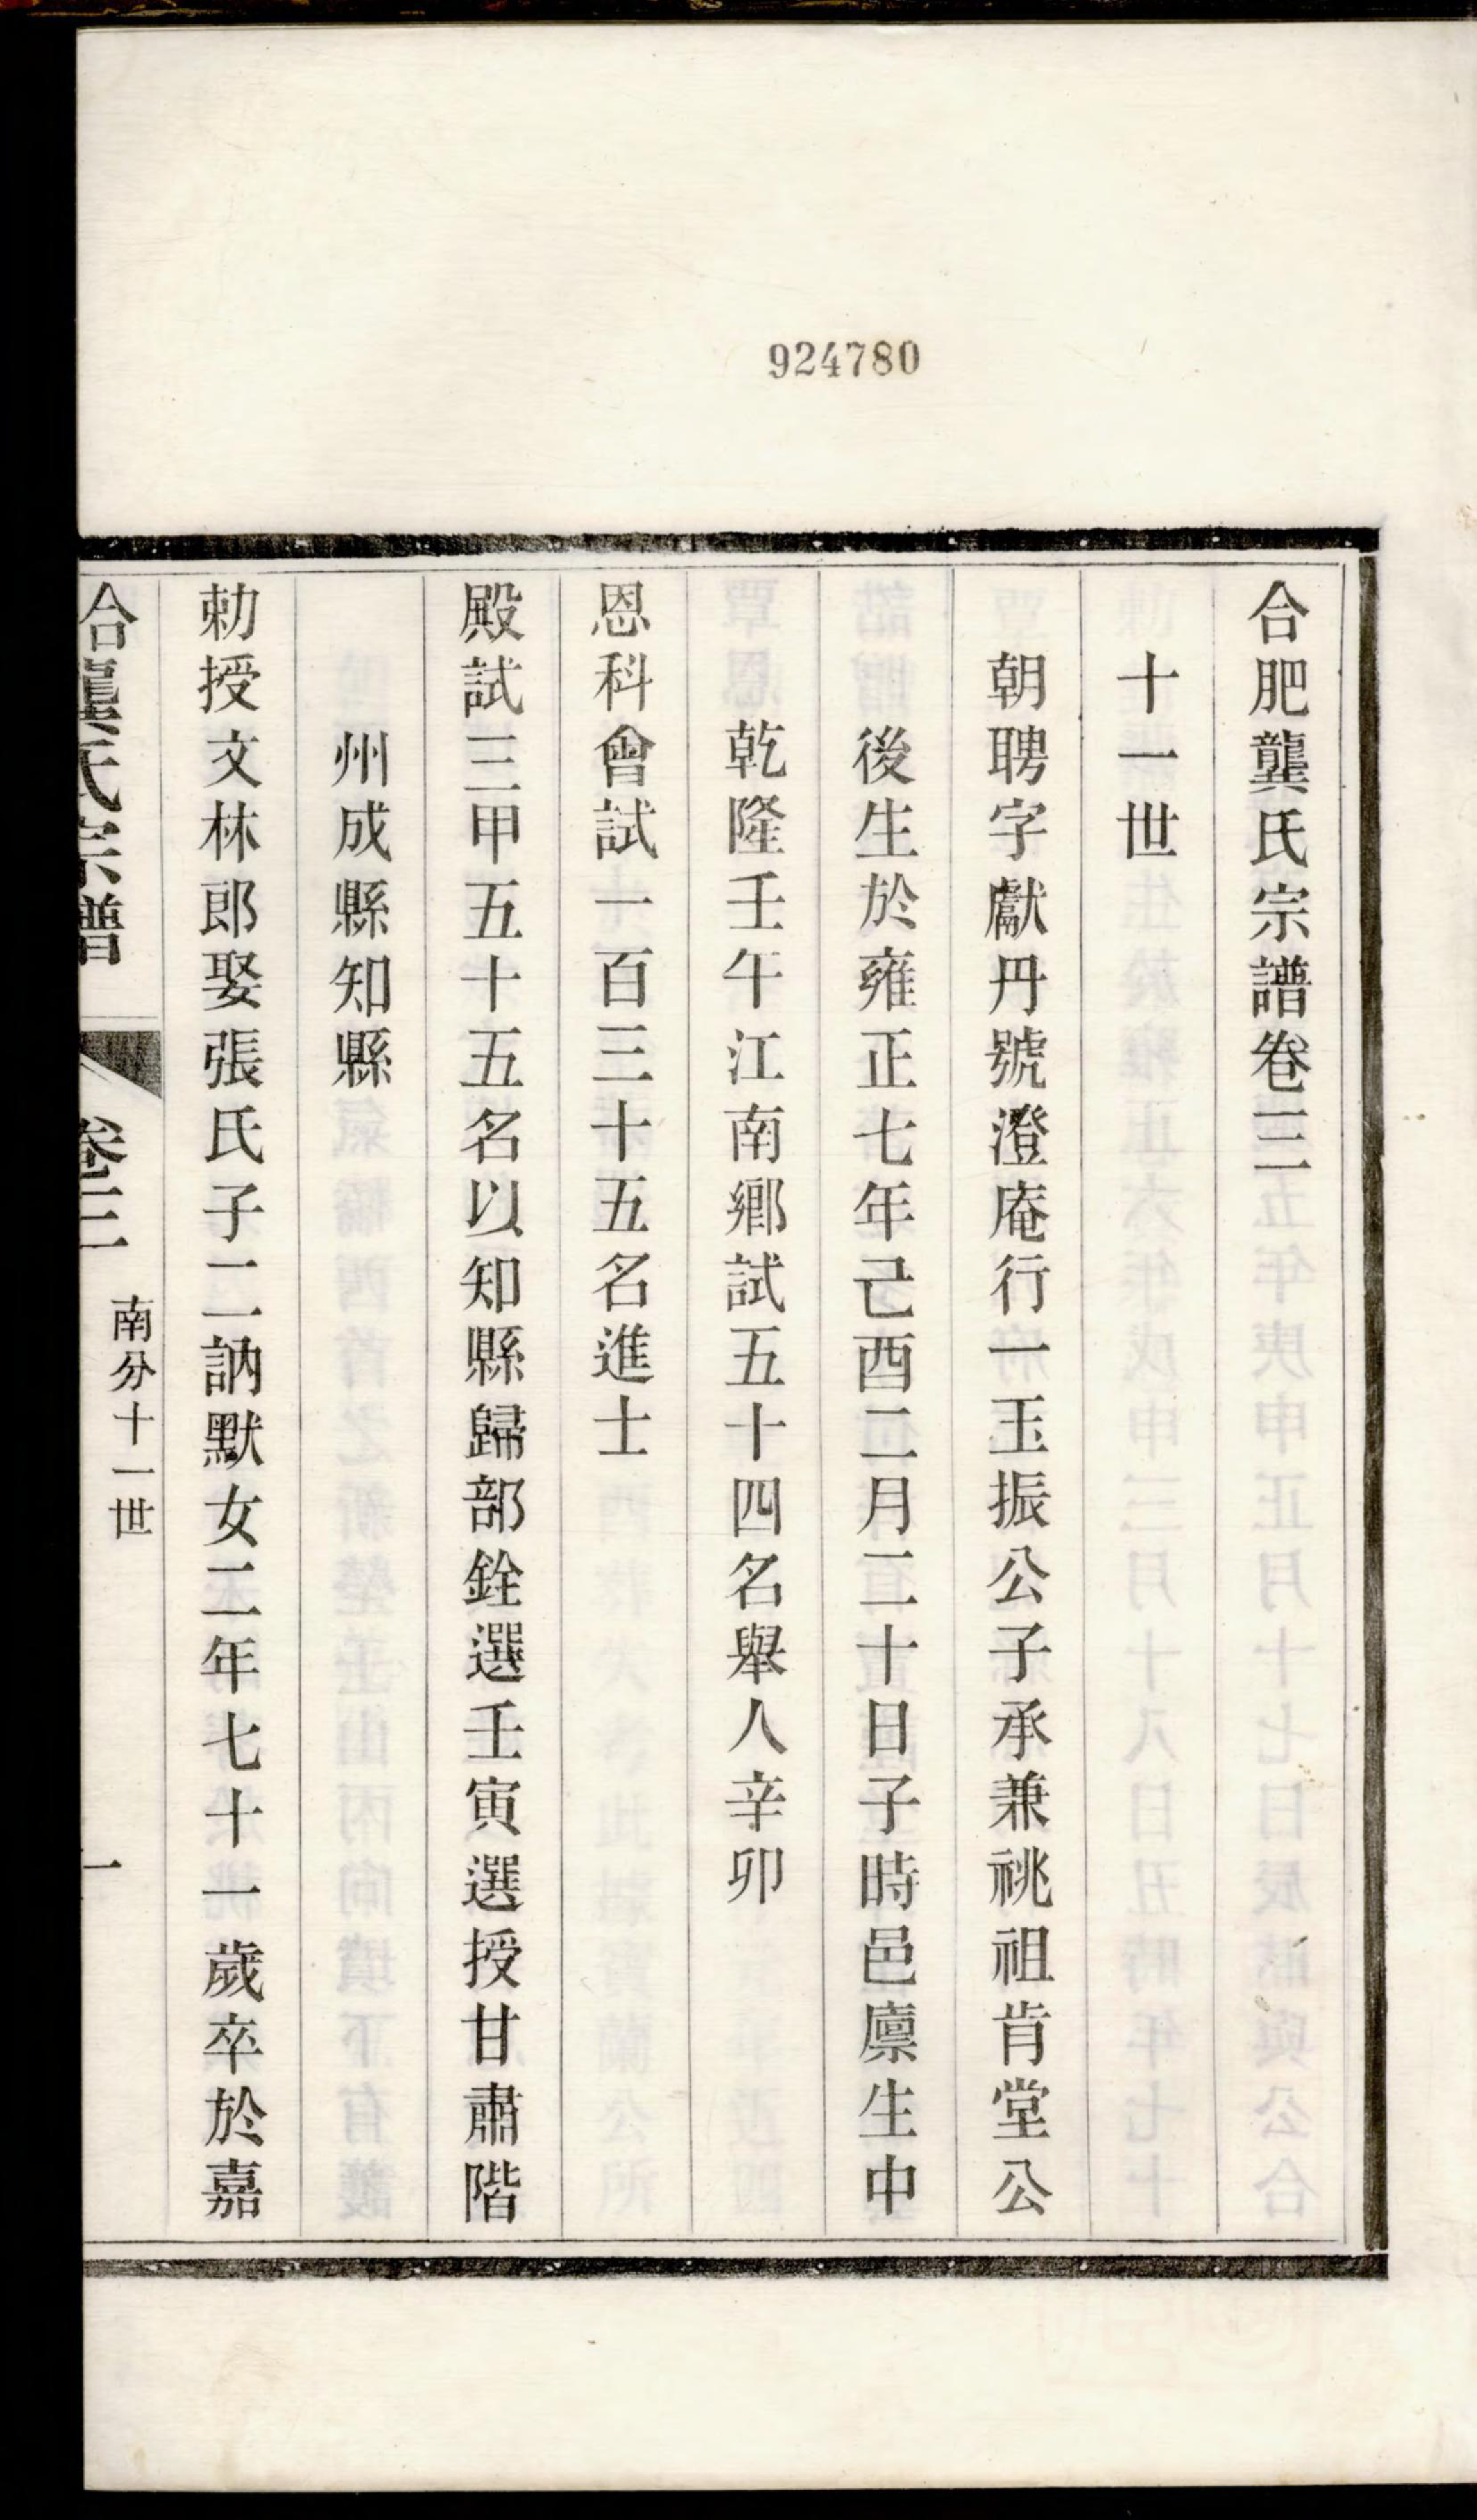 924780
合肥龔氏宗譜卷三
十一世
朝聘字獻丹號澄庵行一玉振公子承兼祧祖肯堂公
後生於雍正七年己酉二月二十日子時邑廩生中
乾隆壬午江南鄉試五十四名舉人辛卯
恩科會試一百三十五名進士
殿試三甲五十五名以知縣歸部銓選壬寅選授甘肅階
州成縣知縣
勅授文林郎娶張氏子二訥默女二年七十一歲卒於嘉
合龔氏宗譜 卷三 南分十一世 一